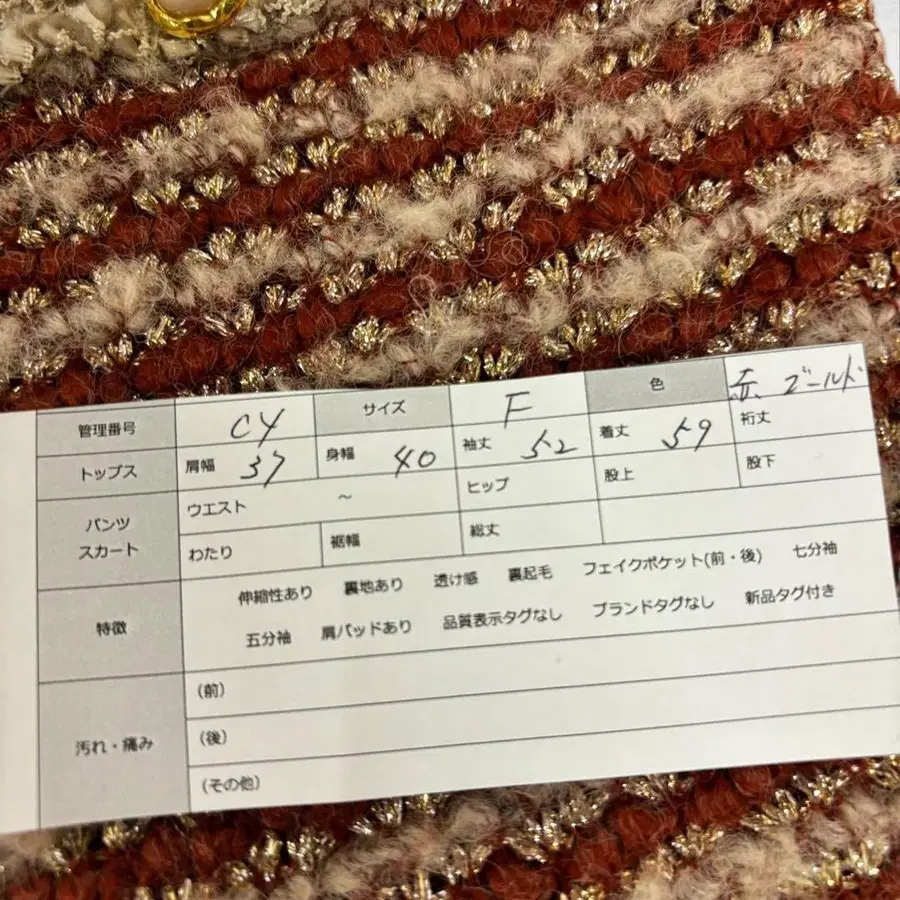 管理番号 CY サイズ F 色 赤、ゴールド
トップス 肩幅 37 身幅 40 袖丈 52 着丈 59 裄丈
パンツ スカート ウエスト ～ ヒップ 股上 股下
わたり 裾幅 総丈
特徴 伸縮性あり 裏地あり 透け感 裏起毛 フェイクポケット(前・後) 七分袖
五分袖 肩パッドあり 品質表示タグなし ブランドタグなし 新品タグ付き
汚れ・痛み (前)
(後)
(その他)